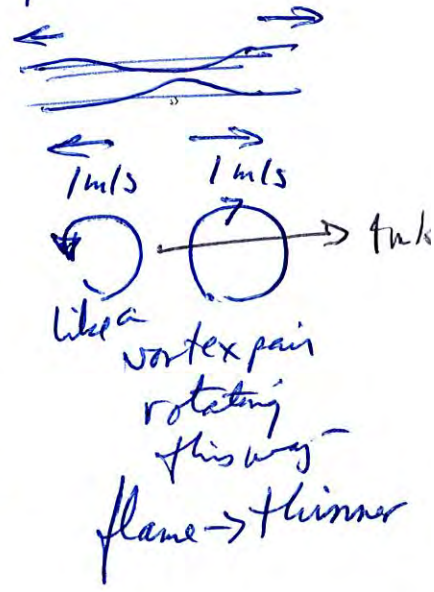 1m/s 1m/s
4m/s
like a
vortex pair
rotating
this way
flame → thinner